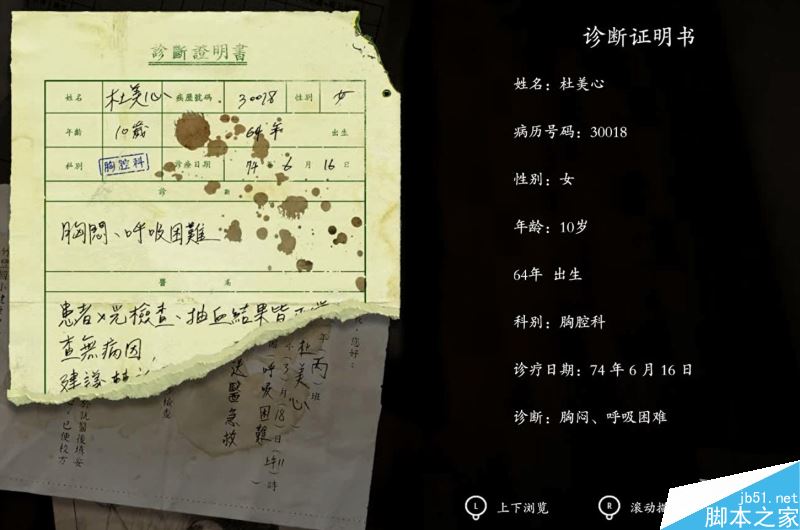 診斷證明書
姓名 杜美心 病歷號碼 30018 性別 女
年齡 10歲 64年 出生
科別 胸腔科 診療日期 74年 6月 16日
診 斷
胸悶、呼吸困難
醫 囑
患者X光檢查、抽血結果皆
查無病因,
建議
您好:
年(丙)班
杜美心
(3)月(18)日(上午11)時
(呼吸困難)
送醫急救
诊断证明书
姓名:杜美心
病历号码:30018
性别:女
年龄:10岁
64年 出生
科别:胸腔科
诊疗日期:74 年 6 月 16 日
诊断:胸闷、呼吸困难
L 上下浏览
R 滚动
jb51.net
脚本之家